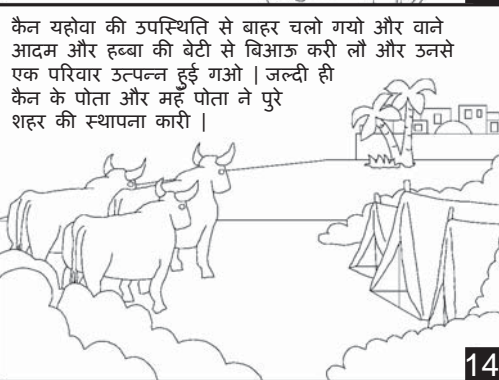 कैन यहोवा की उपस्थिति से बाहर चलो गयो और वाने
आदम और हब्बा की बेटी से बिआऊ करी लौ और उनसे
एक परिवार उत्पन्न हुई गओ | जल्दी ही
कैन के पोता और महँ पोता ने पुरे
शहर की स्थापना कारी |
14